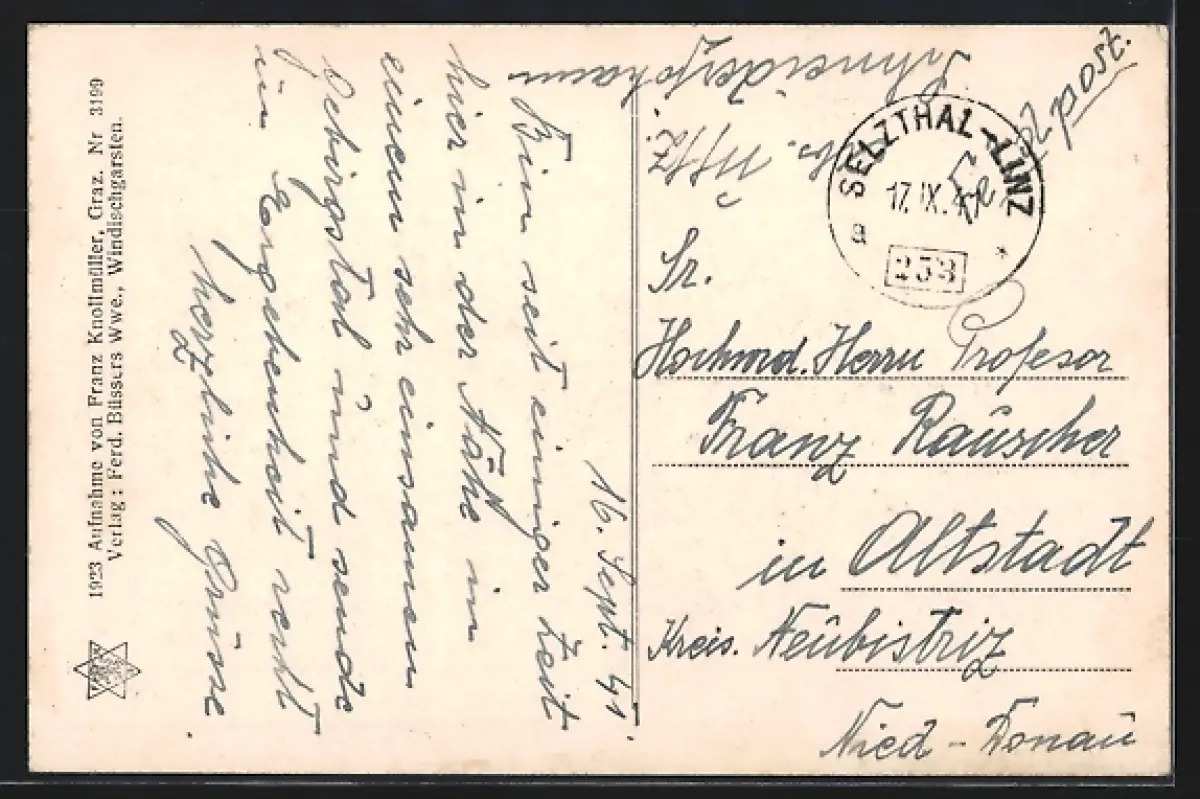 16. Sept. 41.
Bin seit einiger Zeit
hier in der Nähe in
einem sehr einsamen
Gebirgstal und sende
in Ergebenheit recht
herzliche Grüsse.
1923 Aufnahme von Franz Knollmüller, Graz. Nr 3199
Verlag: Ferd. Büssers Wwe., Windischgarsten.
Schneider Johann
Feldpost.
SELZTHAL-LINZ
17. IX. 41
a *
253
Sr.
Hochwrd. Herrn Profesor
Franz Rauscher
in Altstadt
Kreis. Neubistriz
Nied-Donau